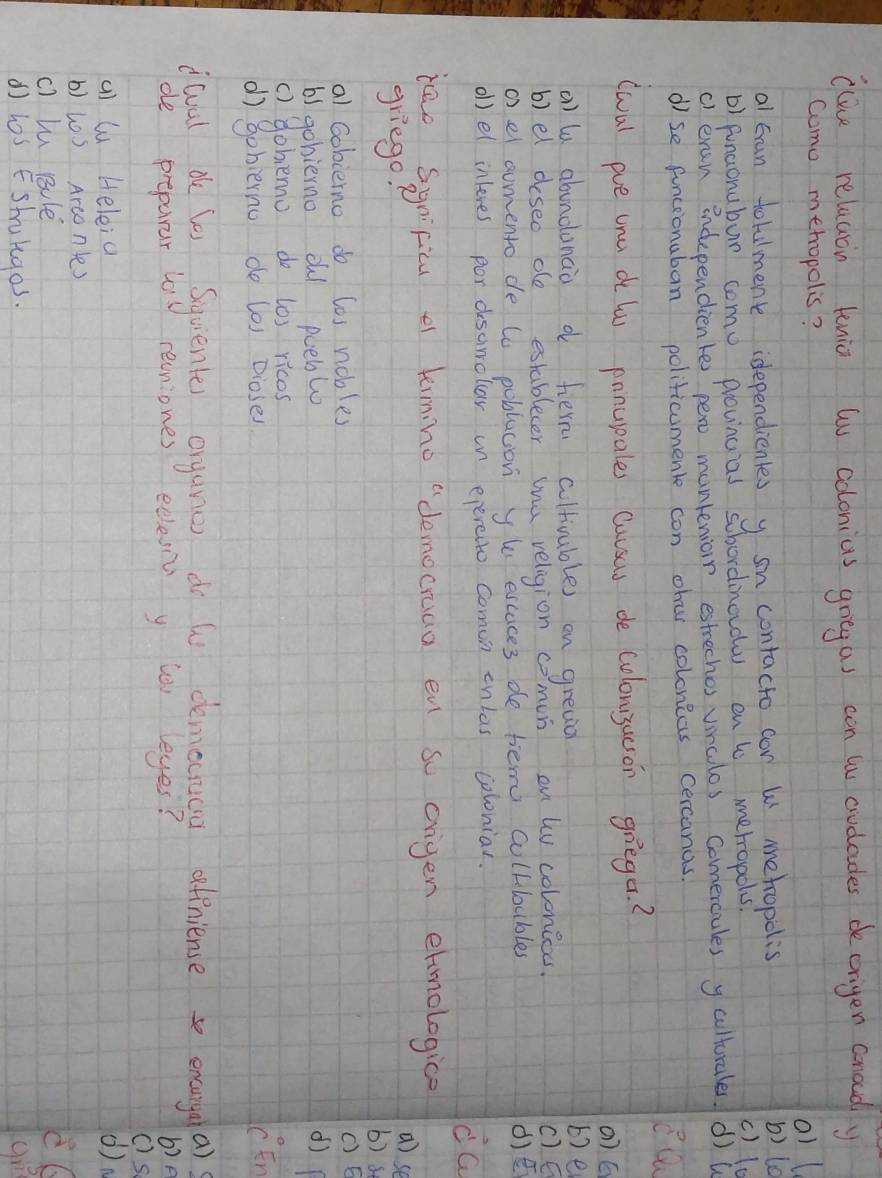 ¿Que relación tenia las colonias griegas con las ciudades de origen conocidy
como metropolis?
a) Eran totalmente idependientes y sin contacto con la metropolis
b) funcionaban como provincias subordinadas en la metropolis.
c) eran independientes pero mantenioin estrechos vinculos comerciales y culturales.
d) se funcionaban politicamente con otras colonias cercanas.
Cual fue una de las principales causas de colonización griega?
a) la abundancia de tierra cultivables en grecia
b) el deseo de establecer una religion común en las colonias.
c) el aumento de la población y la escaces de tierra cultibables
d) el interes por desarrollar un ejercito común en las colonias.
¿Que significa el termino "democracia en su origen etimologico
griego?
a) Gobierno de los nobles
b) gobierno del pueblo
c) gobierno de los ricos
d) gobierno de los Dioses.
¿Cual de las siguientes organos de la democracia atiniense se encarga
de preparar las reuniones y las leyes?
a) la Heleia
b) los Arcontes
c) la Bulé
d) los Estrategas.
a) l
b) lo
c) lo
d) la
a) G
b) el
c) E
d) El
a) se
b) se
c) G
d) P
¿En
a)
b) A
c) S
d) N